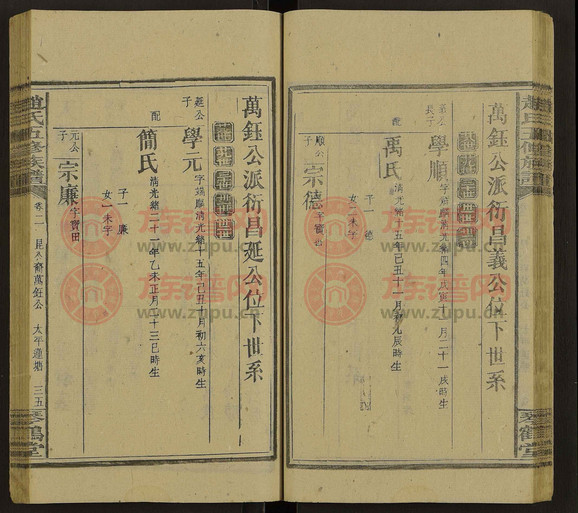 萬鈺公派衍昌義公位下世系
義公長子
學順
字
清光緒四年戊寅十月二十一戌時生
配
禹氏
清光緒十五年己丑十一月初九辰時生
子一 德
女一未字
順公子
宗德
字
趙氏五修族譜
琴鶴堂
萬鈺公派衍昌延公位下世系
延公子
學元
字
清光緒十五年己丑十月初六亥時生
配
簡氏
清光緒二十一年乙未正月二十三巳時生
子一 廉
女一未字
元公子
宗廉
字寶田
趙氏五修族譜
卷二
萬鈺公
太平
三五
琴鶴堂
族谱网
www.zupu.cn
族谱网
www.zupu.cn
族谱网
www.zupu.cn
族谱网
www.zupu.cn